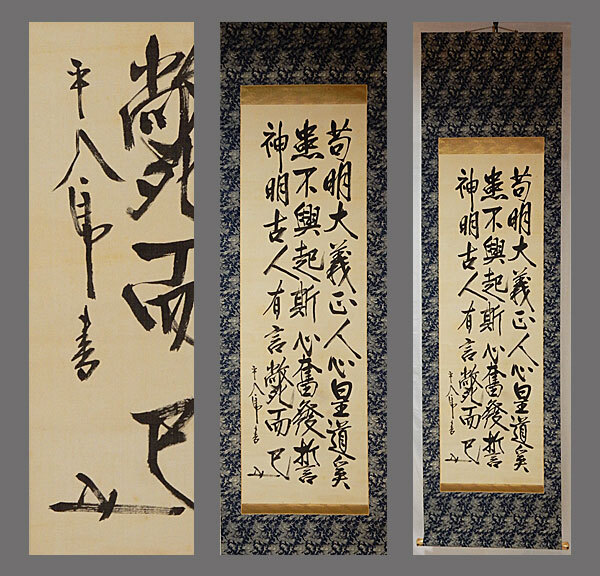 斃而已
平八郎書
苟明大義正人心皇道奚
患不興起斯心奮發誓
神明古人有言斃而已
平八郎書
苟明大義正人心皇道奚
患不興起斯心奮發誓
神明古人有言斃而已
平八郎書